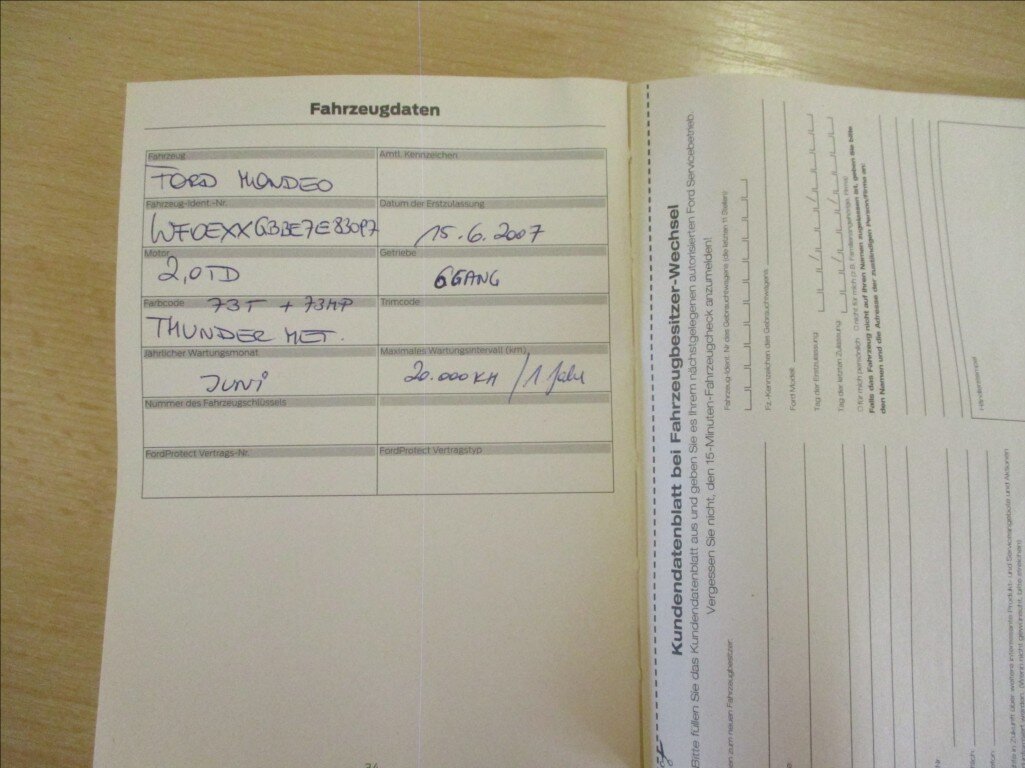 Fahrzeugdaten
Fahrzeug
FORD MONDEO
Amtl. Kennzeichen
Fahrzeug-Ident.-Nr.
WF0EXXGBBE7E83097
Datum der Erstzulassung
15.6.2007
Motor
2,0TD
Getriebe
6GANG
Farbcode 73T + 73MP
THUNDER MET.
Trimcode
Jährlicher Wartungsmonat
JUNi
Maximales Wartungsintervall (km)
20.000KM / 1 Jahr
Nummer des Fahrzeugschlüssels
FordProtect Vertrags-Nr.
FordProtect Vertragstyp
Kundendatenblatt bei Fahrzeugbesitzer-Wechsel
Bitte füllen Sie das Kundendatenblatt aus und geben Sie es Ihrem nächstgelegenen autorisierten Ford Servicebetrieb.
Vergessen Sie nicht, den 15-Minuten-Fahrzeugcheck anzumelden!
Fahrzeug-Ident. Nr des Gebrauchtwagens (die letzten 11 Stellen):
Fz.-Kennzeichen des Gebrauchtwagens:
Ford Modell:
Tag der Erstzulassung:
Tag der letzten Zulassung:
für mich persönlich nicht für mich (z.B. Familienangehörige, Firma)
Falls das Fahrzeug nicht auf Ihren Namen zugelassen ist, geben Sie bitte
den Namen und die Adresse der zuständigen Person/Firma an:
Händlerstempel
en zum neuen Fahrzeugbesitzer: